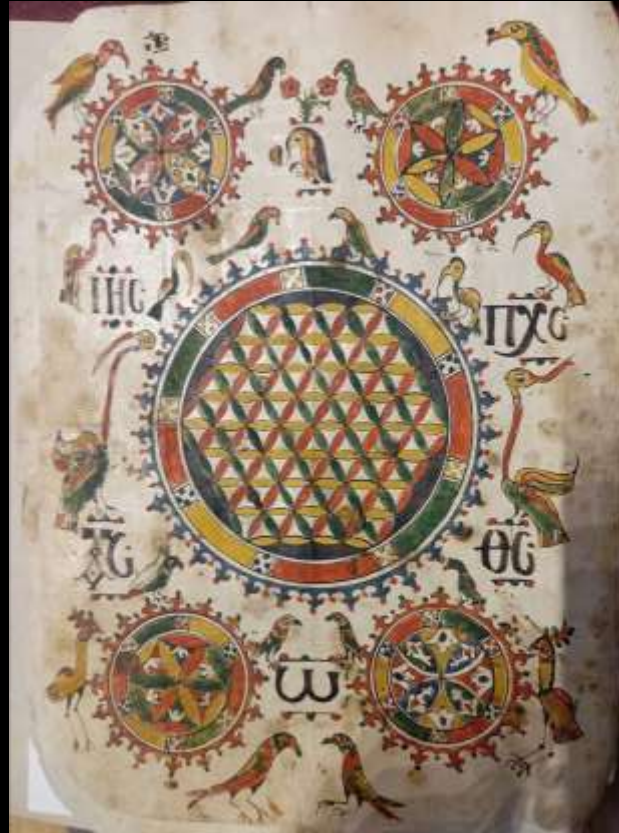 ⲓⲏⲥ ⲡⲭⲥ
ⲩⲥ ⲑⲥ
ⲱ